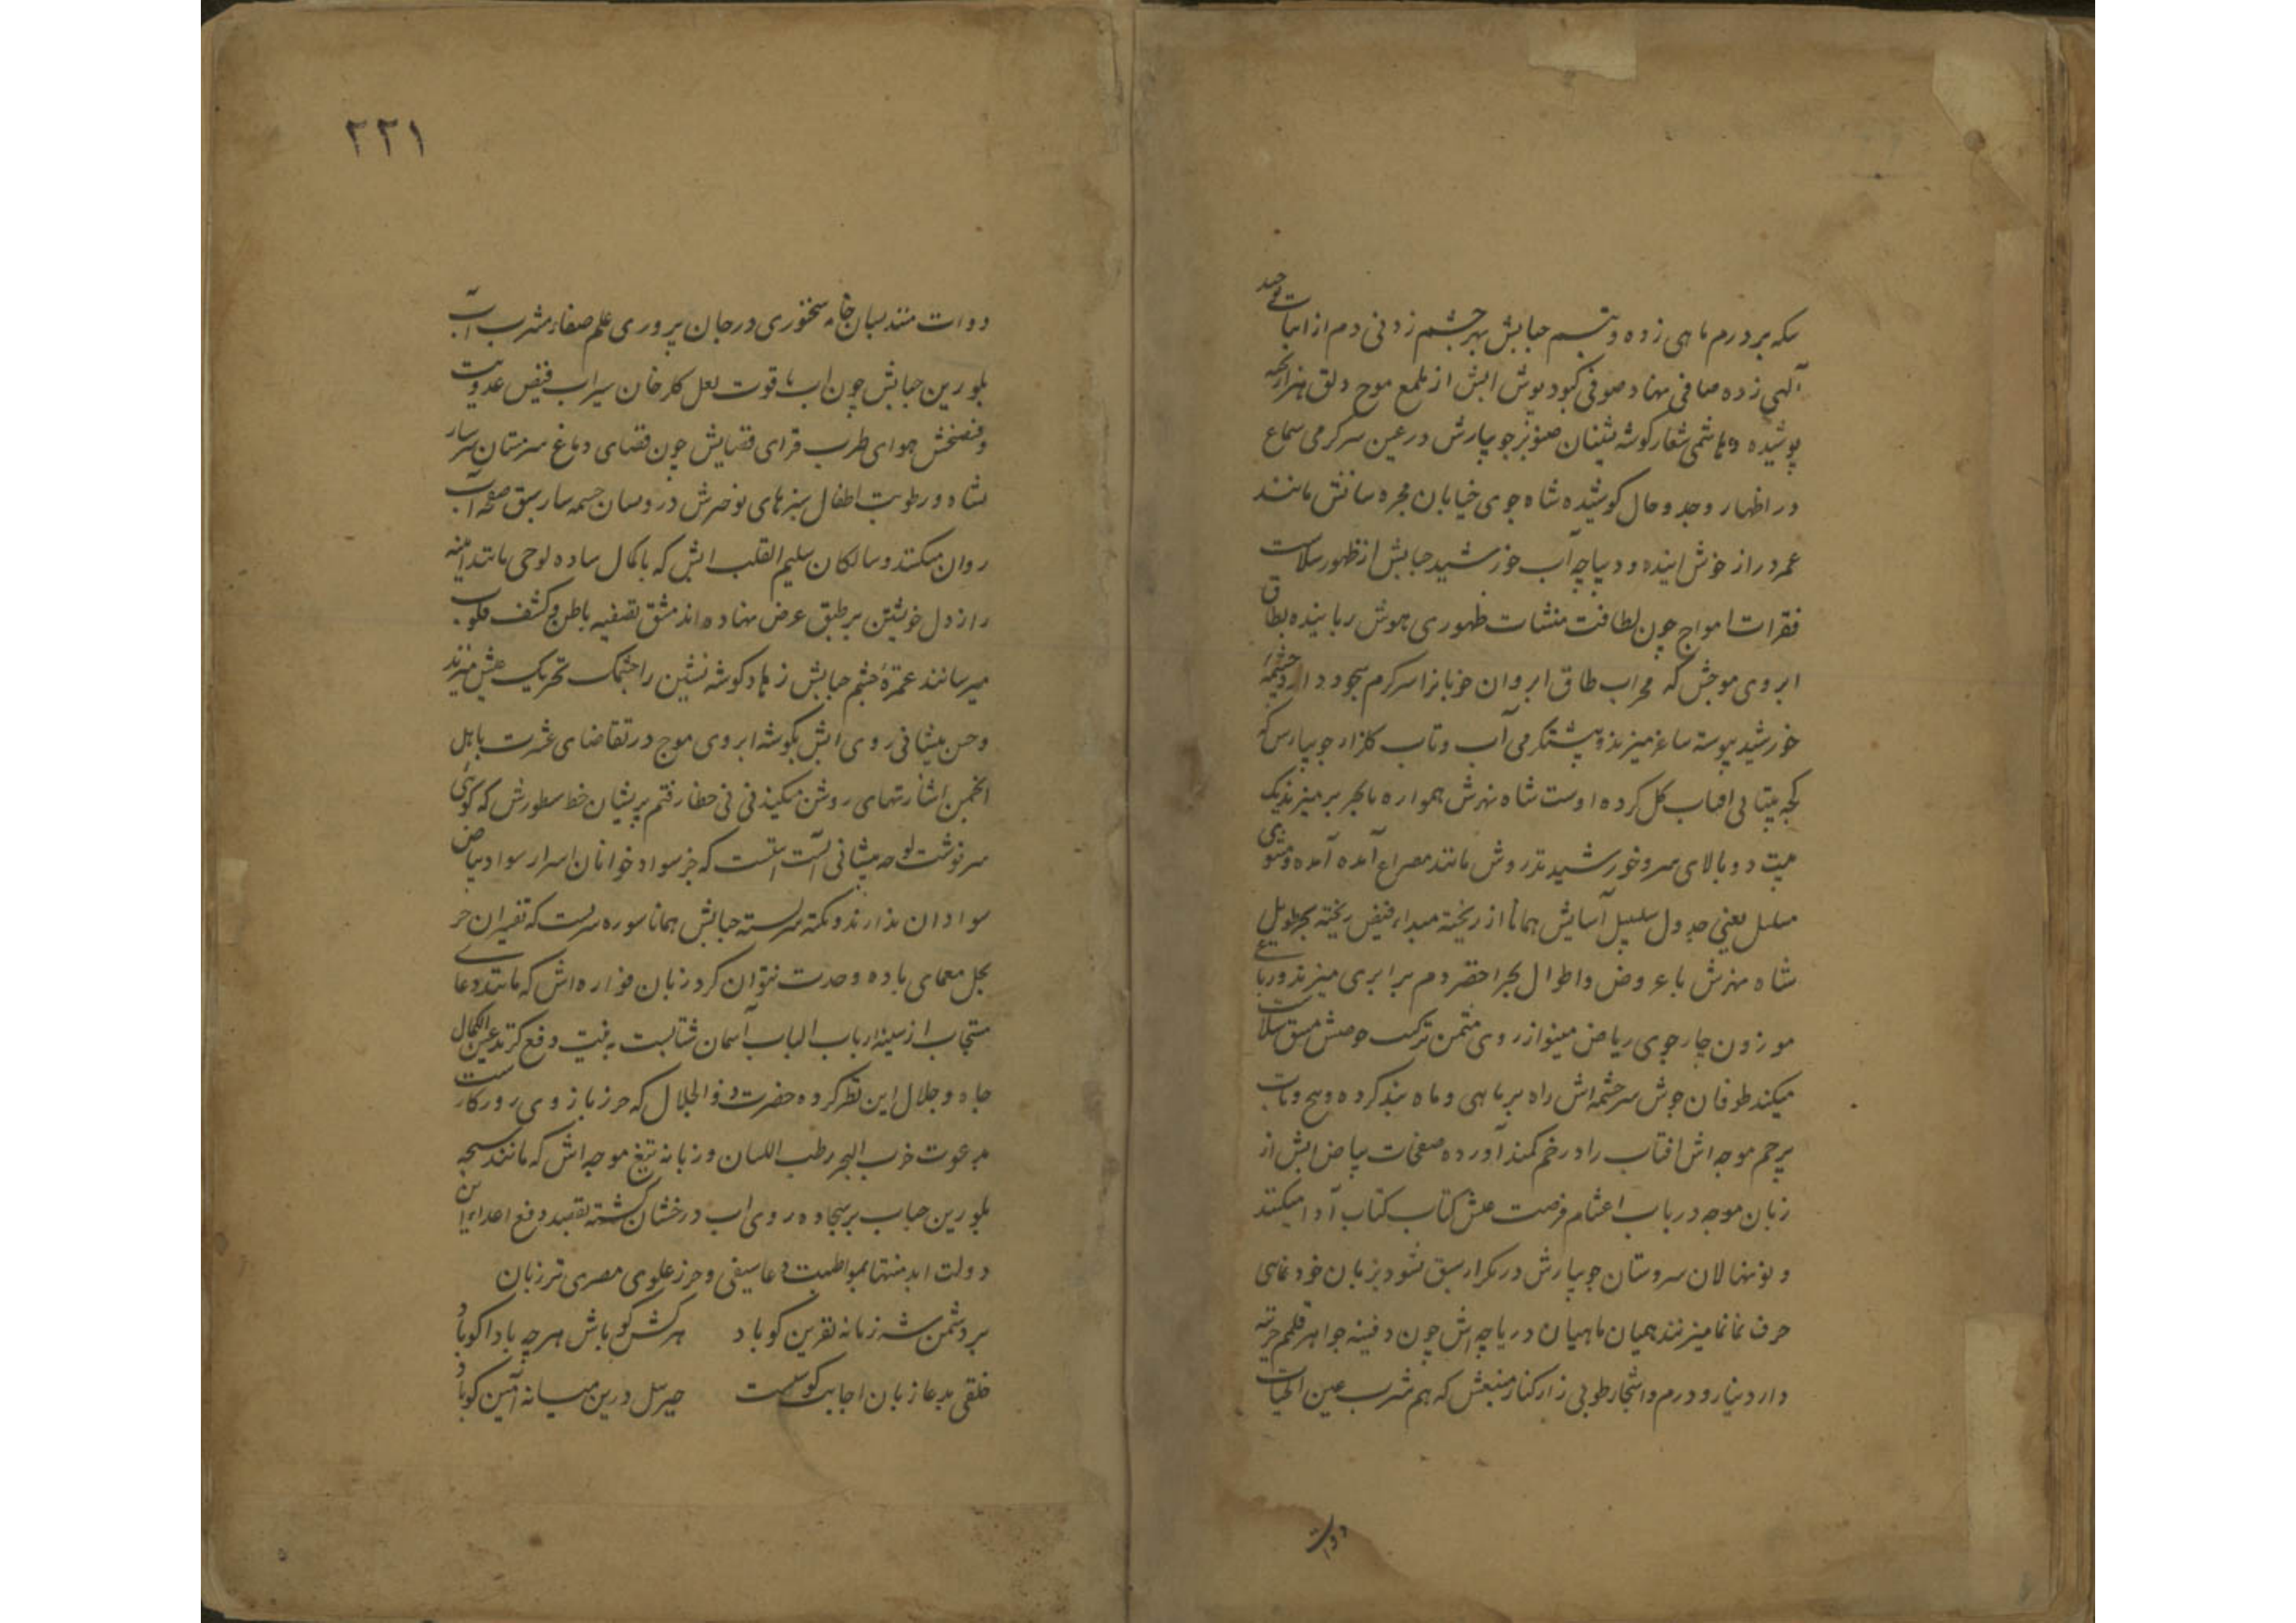 سکه بر درم ماهی زده و تبسم حبابش بهر چشم زدنی دم از اثبات توحید
الهی زده صافی نهاد صوفی کبود پوش آبش از ملمع موج دلق هزار بخیه
پوشیده و هاشمی شعار گوشه نشینان صنوبر جویبارش در عین سرگرمی سماع
در اظهار وجد و حال کوشیده شاه جوی خیابان مجره سانش مانند
عمر دراز خوش آینده و دیباچه آب خورشید حبابش از ظهور سلاست
فقرات امواج چون لطافت منشات ظهوری هوش رباینده بطاق
ابروی موجش که محراب طاق ابروان خوبانرا سرگرم سجود دارد چشمه
خورشید پیوسته ساغر میزند و پشتگرمی آب و تاب گلزار جویبارس که
کجه بیتابی افتاب گل کرده اوست شاه نهرش همواره با بحر بر میزند یک
بیت دو بالای سرو خورشید تذروش مانند مصراع آمده آمده و مثنوی
مسلسل یعنی جدول سلسبیل آسایش همانا از ریخته مبداء فیض ریخته بحر طویل
شاه نهرش با عروض و اطوال بحر اخضر دم برابری میزند و رباعی
موزون چارجوی ریاض مینو از روی مثمن ترکیب حوضش مسق سلاست
میکند طوفان جوش سرچشمه‌اش راه بر ماهی و ماه بند کرده و پیچ و تاب
پرچم موجه‌اش افتاب را در خم کمند آورده صفحات بیاض آبش از
زبان موجه در باب اغتنام فرصت عیش کتاب کتاب آدا میکنند
و نونهالان سروستان جویبارش در تکرار سبق نشو و بزبان خود نمایی
حرف نمانما میزنند همیان ماهیان دریاچه‌اش چون دفینه جواهر قلمم خرینه
دار دینار و درم و اشجار طوبی زار کنار منبعش که هم شرب عین الحیات
دوات
۲۲۱
دوات مند بسان خامه سخنوری در جان پروری علم صفاء مشرب آب
بلورین حبابش چون آب یاقوت لعل گلرخان سیراب فیض عذوبت
و فیضبخش هوای طرب فزای فضایش چون فضای دماغ سرمستان سرشار
نشاه و رطوبت اطفال سبزهای نوخیزش در دبستان چشمه سار سبق صفحه آب
روان میکنند و سالکان سلیم القلب آبش که با کمال ساده لوحی مانند آینه
راز دل خویشتن بر طبق عرض نهاده‌اند مشق تصفیه باطن و کشف قلوب
میرسانند غمزه چشم حبابش زهاد گوشه نشین را چشمک تحریک عیش میزند
و حسن پیشانی روی آبش بگوشه ابروی موج در تقاضای عشرت باهل
انجمن اشارتهای روشن میکند نی نی خطا رفتم پریشان خط سطورش که گوئی
سرنوشت لوحه پیشانی آنست آیتست که جز سواد خوانان اسرار سواد بیاض
سوادان ندارند و نکته سربسته حبابش همانا سوره‌ایست که تفسیران جز
بحل معمای باده وحدت نتوان کرد زبان فواره‌اش که مانند دعای
مستجاب از سینه ارباب الباب آسمان شتابست به نیت دفع گزند عین الکمال
جاه و جلال این نظر کرده حضرت ذو الجلال که حرز بازوی روزگارست
بدعوت حزب البحر رطب اللسان و زبانه تیغ موجه‌اش که مانند سبحه
بلورین حباب بر سجاده روی آب درخشان گشته بقصد دفع اعداء این
دولت ابد منتها بمواظبت دعا سیفی و حرز علوی مصری تر زبان
بر دشمن شه زمانه نفرین گو باد هر کس گو باش هرچه بادا گو باد
خلقی بدعا زبان اجابت گوست جبریل درین میانه آمین گو باد